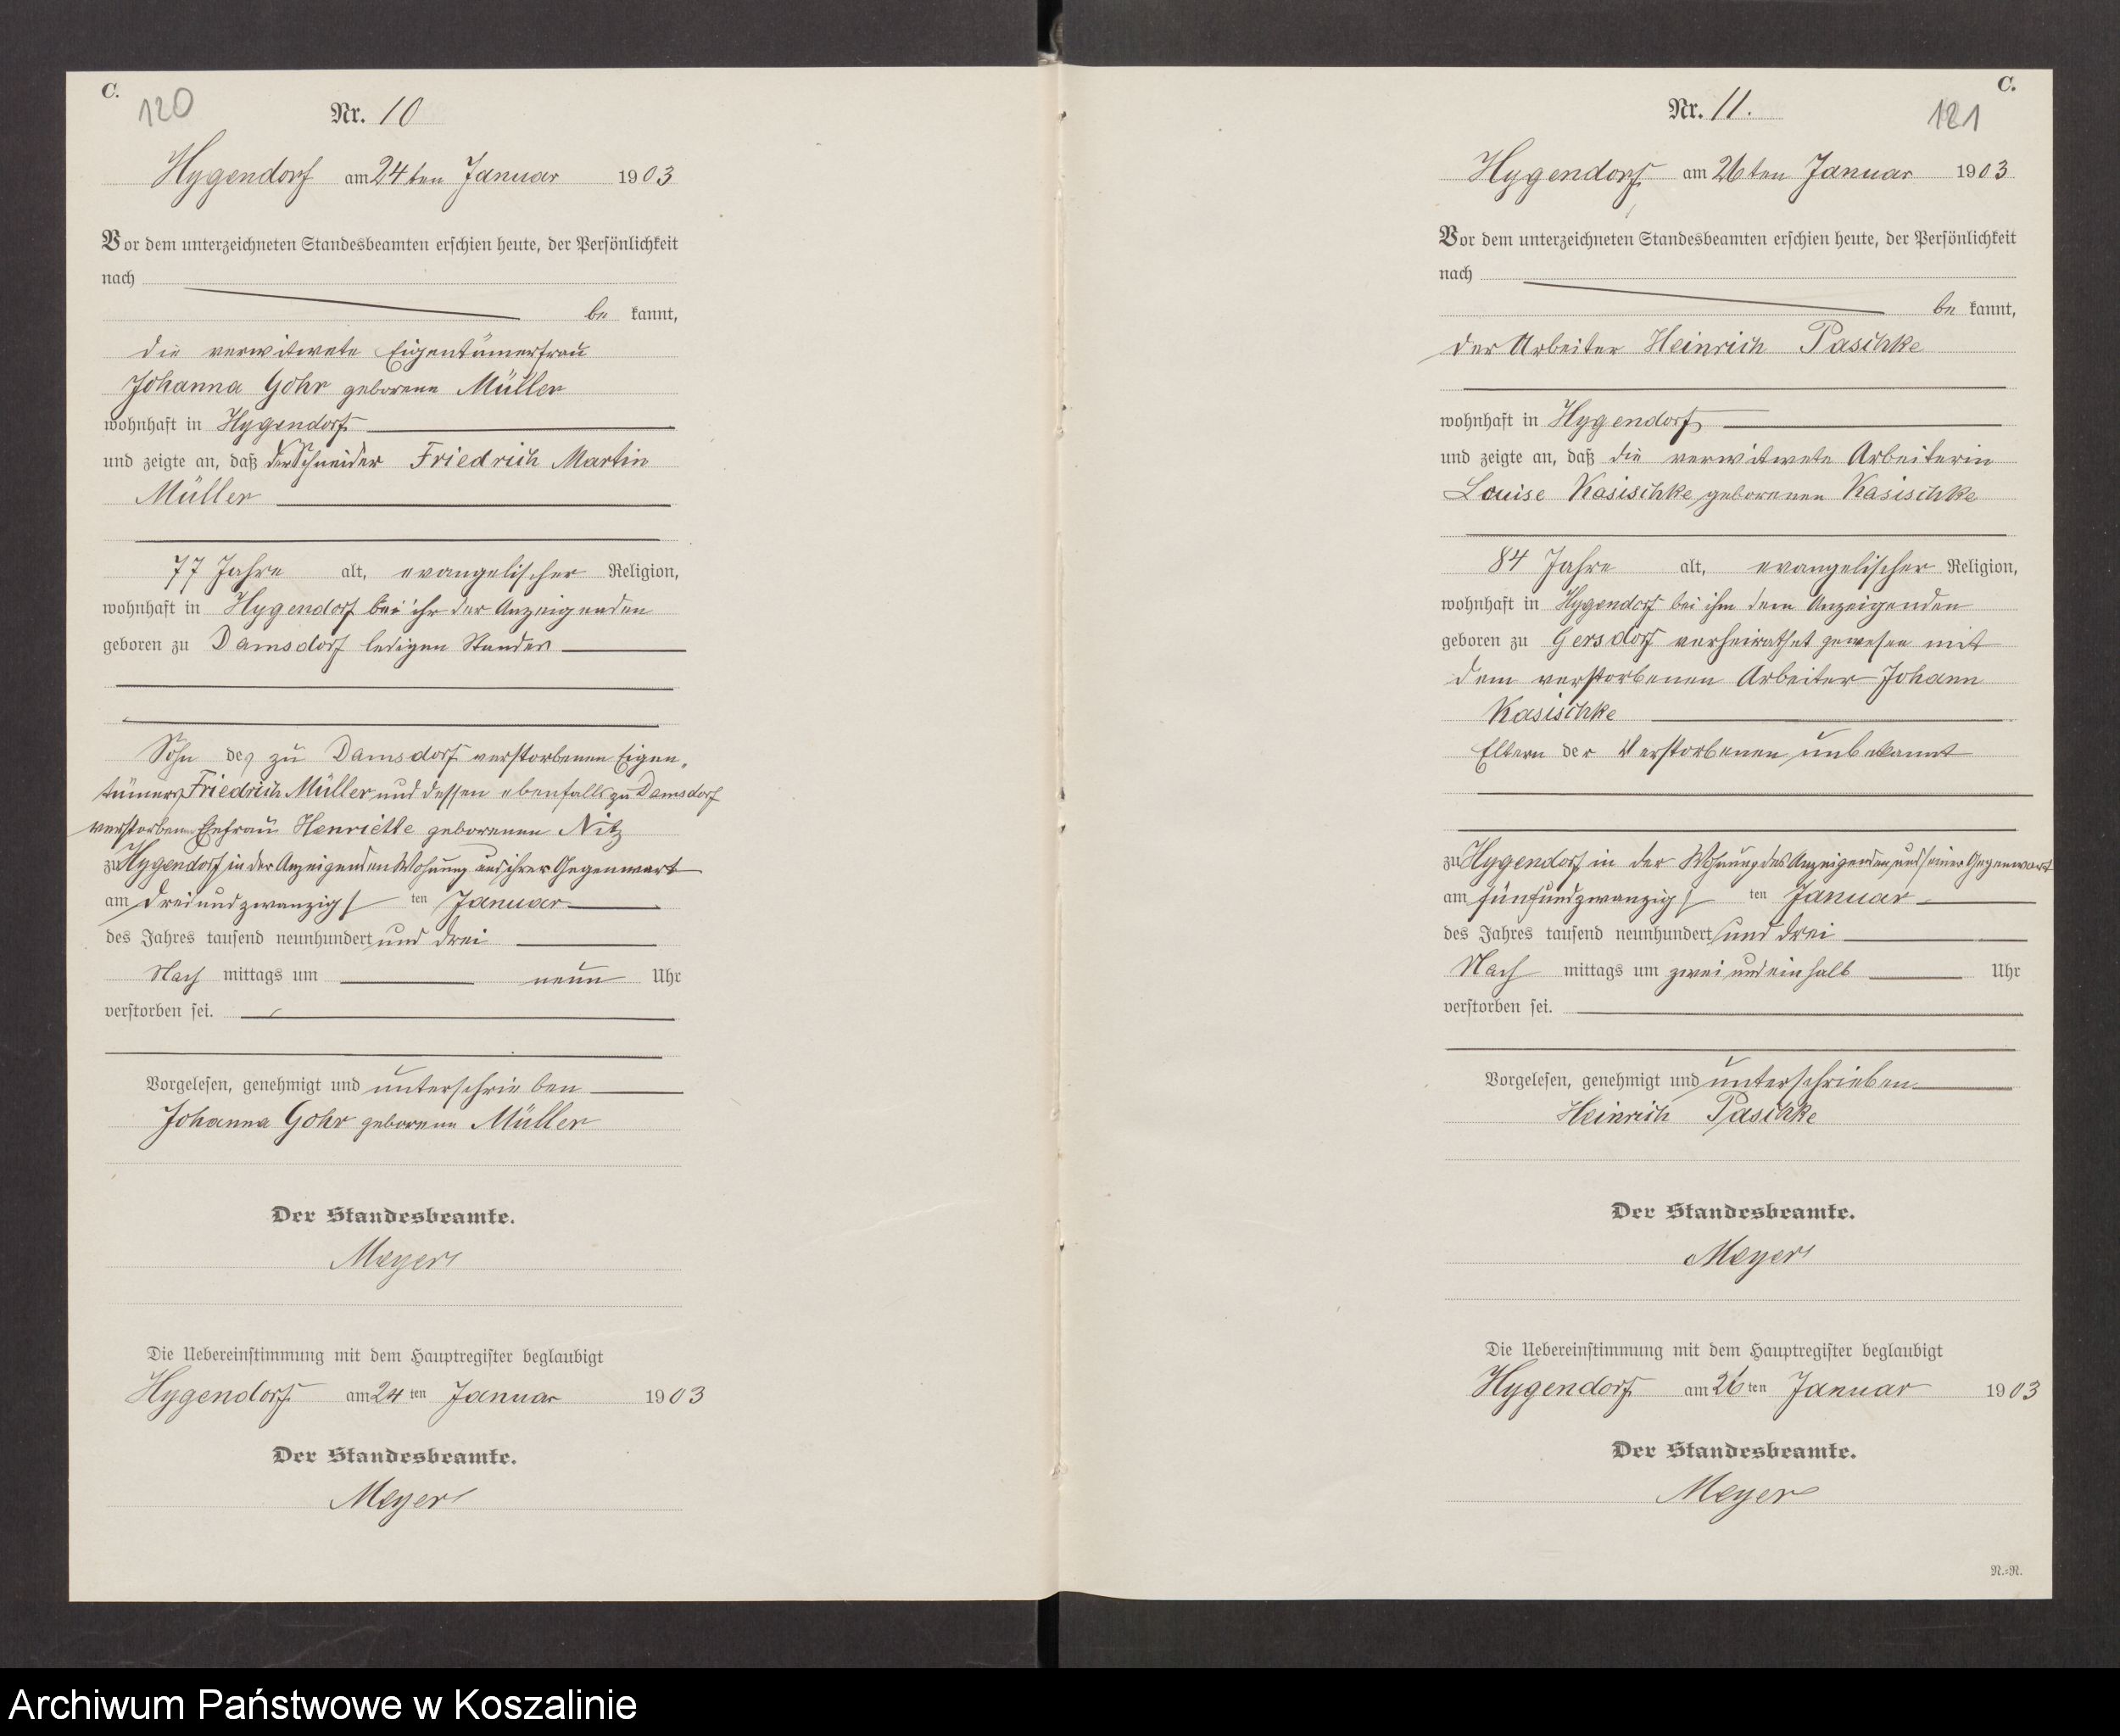 C.
120
Nr. 10
Hygendorf am 24ten Januar 1903
Vor dem unterzeichneten Standesbeamten erschien heute, der Persönlichkeit
nach
be kannt,
die verwitwete Eigentümerfrau
Johanna Gohr geborene Müller
wohnhaft in Hygendorf
und zeigte an, daß der Schneider Friedrich Martin
Müller
77 Jahre alt, evangelischer Religion,
wohnhaft in Hygendorf bei ihr der Anzeigenden
geboren zu Damsdorf ledigen Standes
Sohn des zu Damsdorf verstorbenen Eigen-
tümers Friedrich Müller und dessen ebenfalls zu Damsdorf
verstorbenen Ehefrau Henriette geborenen Nitz
zu Hygendorf in der Anzeigenden Wohnung und ihrer Gegenwart
am dreiundzwanzigsten Januar
des Jahres tausend neunhundert und drei
Nach mittags um neun Uhr
verstorben sei.
Vorgelesen, genehmigt und unterschrieben
Johanna Gohr geborene Müller
Der Standesbeamte.
Meyer
Die Uebereinstimmung mit dem Hauptregister beglaubigt
Hygendorf am 24 ten Januar 1903
Der Standesbeamte.
Meyer
C.
121
Nr. 11.
Hygendorf am 26ten Januar 1903
Vor dem unterzeichneten Standesbeamten erschien heute, der Persönlichkeit
nach
be kannt,
der Arbeiter Heinrich Paschke
wohnhaft in Hygendorf
und zeigte an, daß die verwitwete Arbeiterin
Louise Kasischke geborenen Kasischke
84 Jahre alt, evangelischer Religion,
wohnhaft in Hygendorf bei ihm dem Anzeigenden
geboren zu Gersdorf verheirathet gewesen mit
dem verstorbenen Arbeiter Johann
Kasischke
Eltern der Verstorbenen unbekannt
zu Hygendorf in der Wohnung des Anzeigenden und seiner Gegenwart
am fünfundzwanzigsten Januar
des Jahres tausend neunhundert und drei
Nach mittags um zwei und ein halb Uhr
verstorben sei.
Vorgelesen, genehmigt und unterschrieben
Heinrich Paschke
Der Standesbeamte.
Meyer
Die Uebereinstimmung mit dem Hauptregister beglaubigt
Hygendorf am 26 ten Januar 1903
Der Standesbeamte.
Meyer
N.=N.
Archiwum Państwowe w Koszalinie